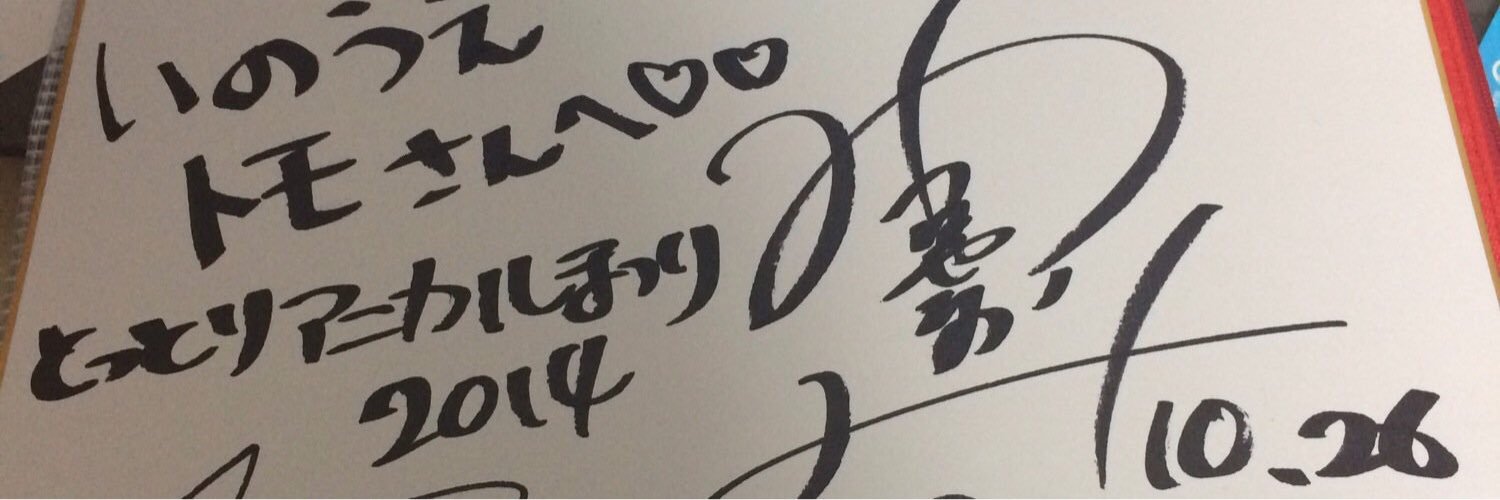 いのうえ
トモさんへ♡♡
とっとりアニカルまつり
2014
10.26